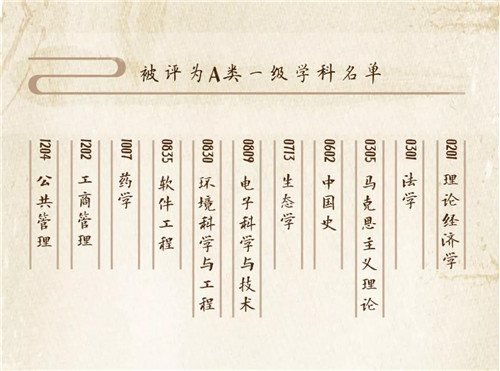 被评为A类一级学科名单
0201 理论经济学
0301 法学
0305 马克思主义理论
0602 中国史
0713 生态学
0809 电子科学与技术
0830 环境科学与工程
0835 软件工程
1007 药学
1202 工商管理
1204 公共管理